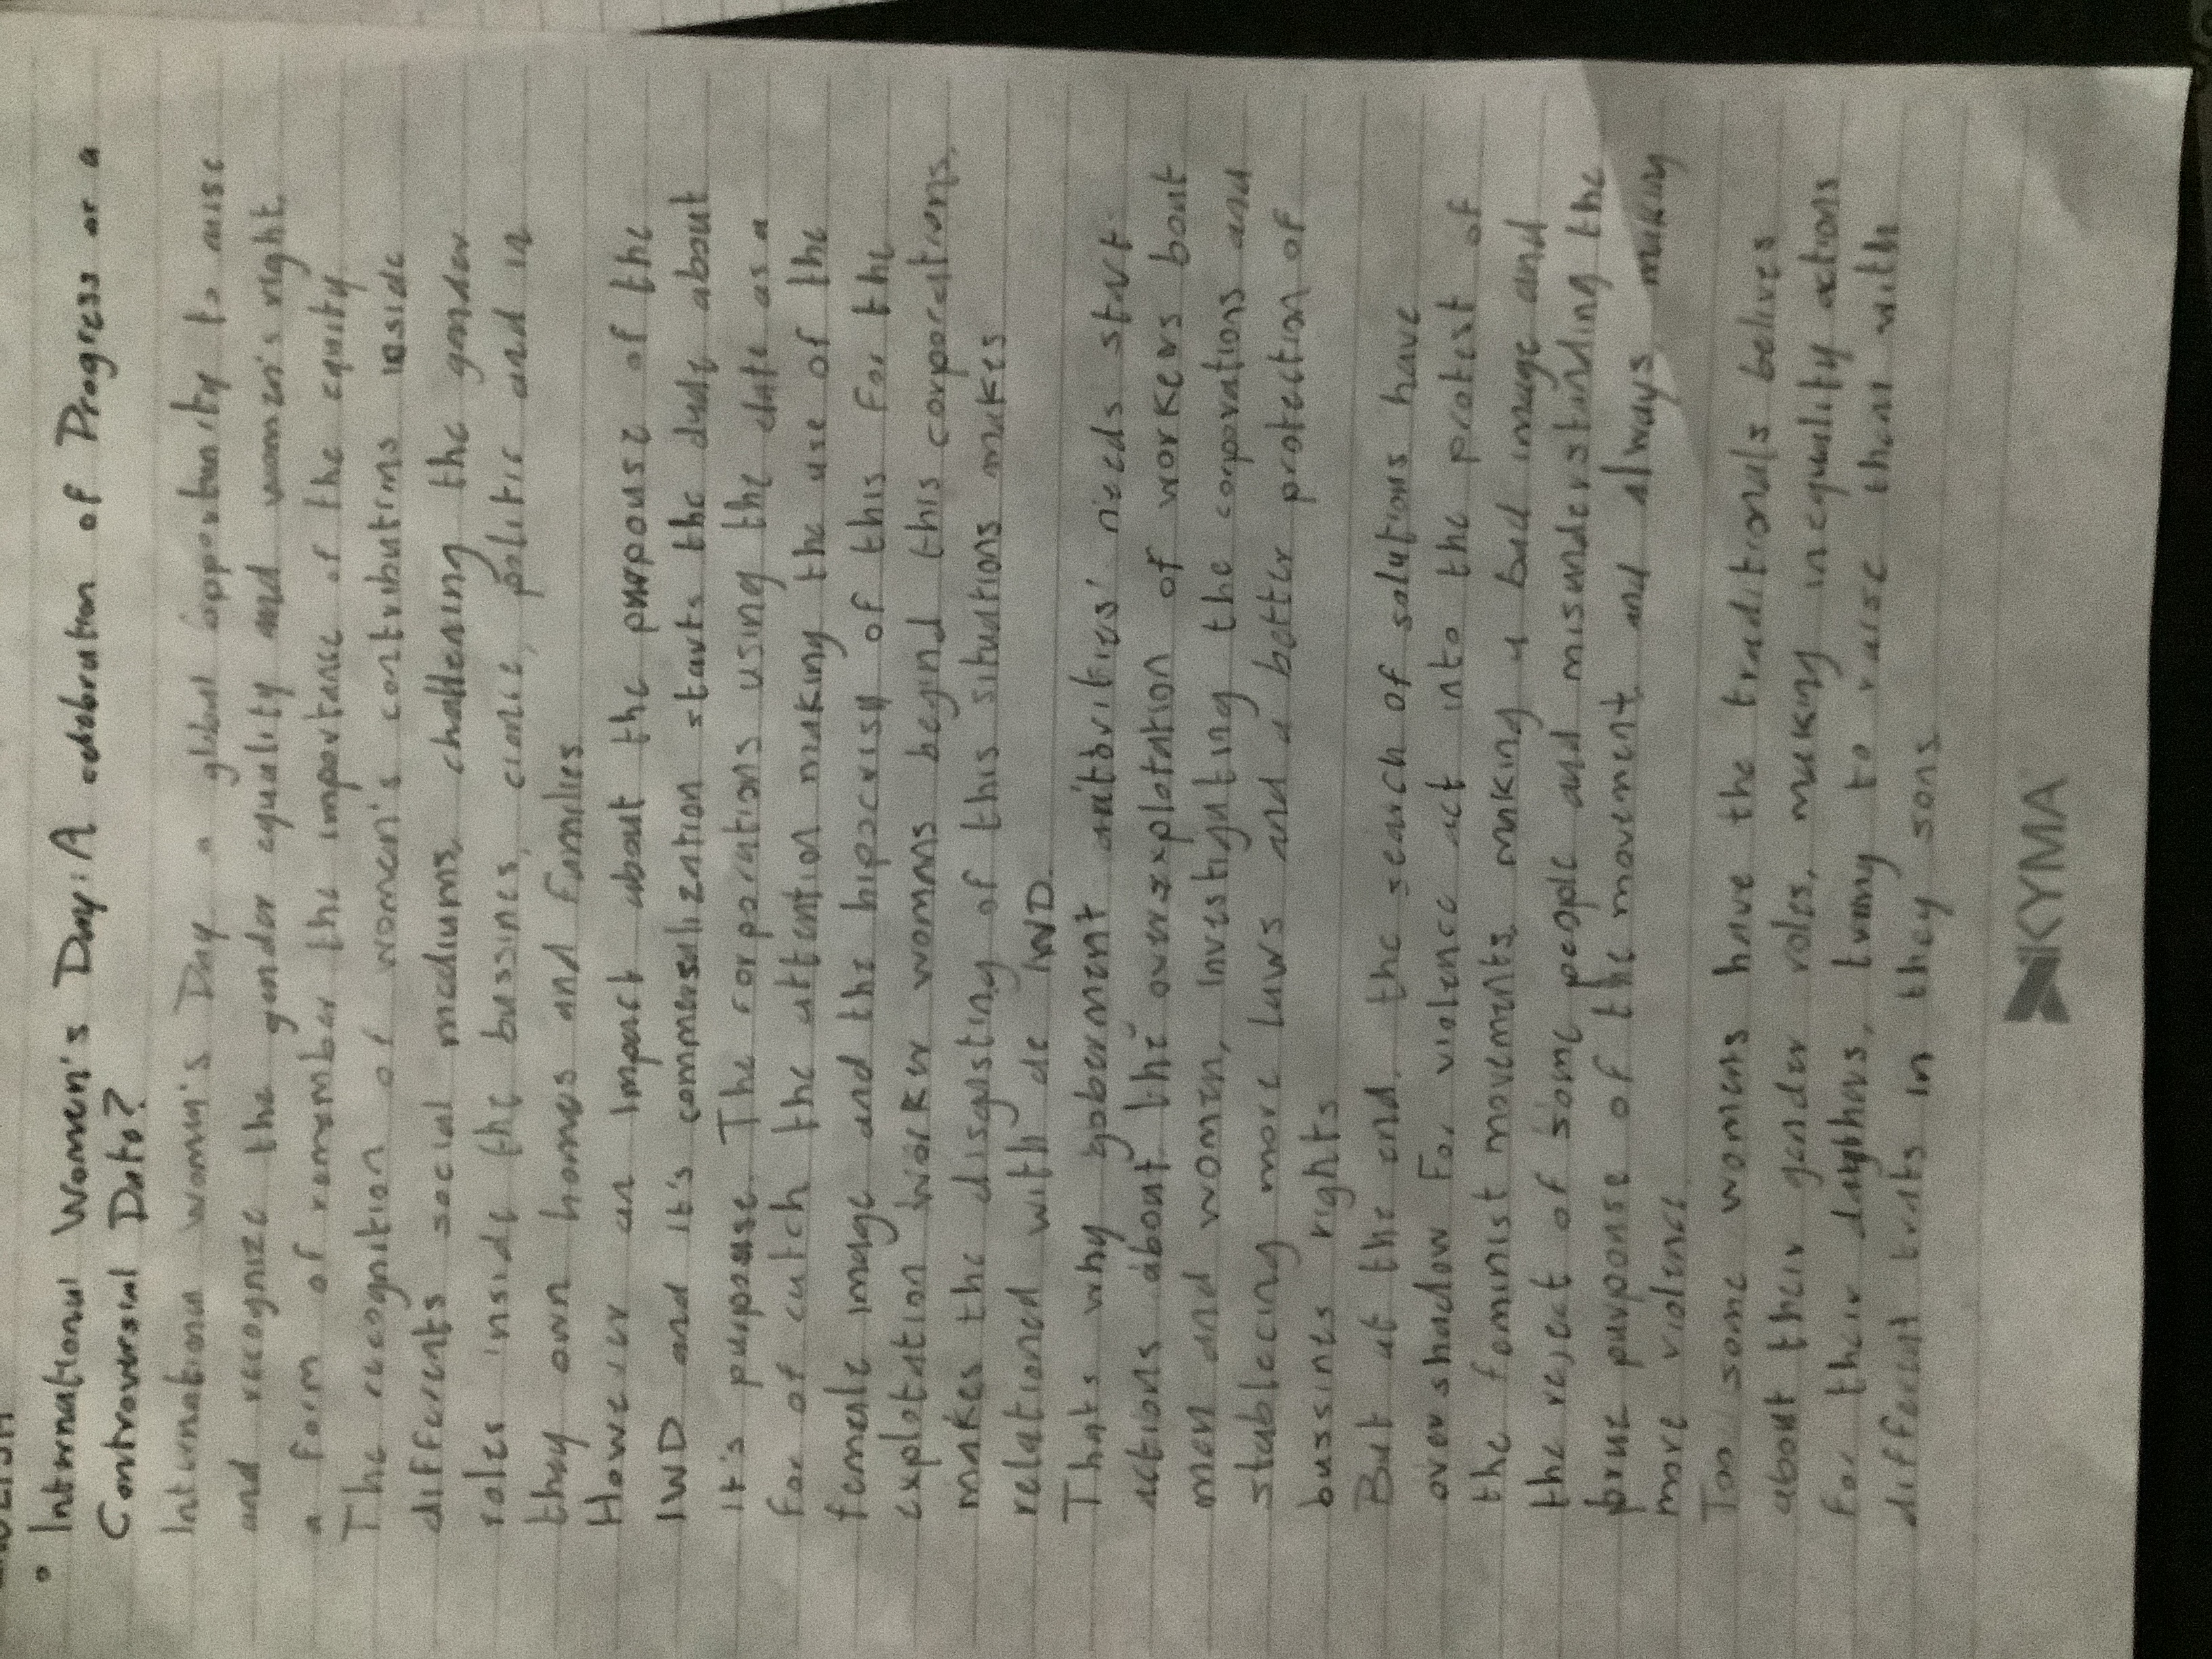 • International Women's Day: A celebration of Progress or a
Controversial Date?
International women's Day a global opportunity to raise
and recognize the gender equality and women's right
a form of remember the importance of the equity
The recognition of women's contributions inside
differents social mediums, challening the gender
roles inside the bussines, cience, politic and in
they own homes and families
However an impact about the purpouse of the
IWD and it's commersalization starts the dude about
it's purpouse. The corporations using the date as a
for of catch the attention making the use of the
female image and the hipocrisy of this for the
explotation worker womans begind this corporations.
makes the disgusting of this situations makes
relationed with de IWD.
Thats why goberment autorities' needs start
actions about the overexplotation of workers bout
men and women, investigating the corporations and
stablecing more laws and a better protection of
bussines rights
But at the end, the search of solutions have
overshadow For violence act into the protest of
the feminist movements, making a bad image and
the reject of some people and misunderstanding the
purpouse of the movement and always making
more violence
Too some womens have the traditionals belives
about their gender roles, making inequality actions
for their to raise them with
different trats in they sons.
KYMA